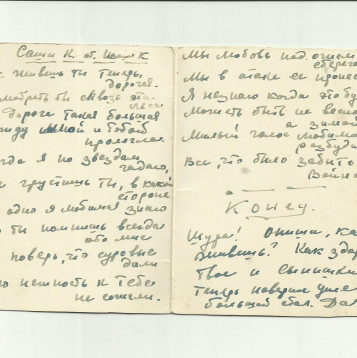 Саши К. от Шуры К
живешь ты теперь,
дорогой.
сквозь эти
леса
Дороги такая большая
между мной и тобой
пролегла.
я по звездам
гадаю,
грустишь ты, в какой
стороне
одно я любимая знаю
ты помнишь всегда
обо мне
поверь, что суровые
дали
нежность к Тебе
не сожгли.
Мы любовь над огнем
сберегли
Мы в атаке ее пронесли
Я незнаю когда это буд
Может быть не весной
а зимой
Милый голос любимой
разбудит
Все, что было забыто
Войной
Конец.
Шура! Опиши, как
живешь? Как здор
Твое и сынишки
Теперь наверно уже
большой стал. Да